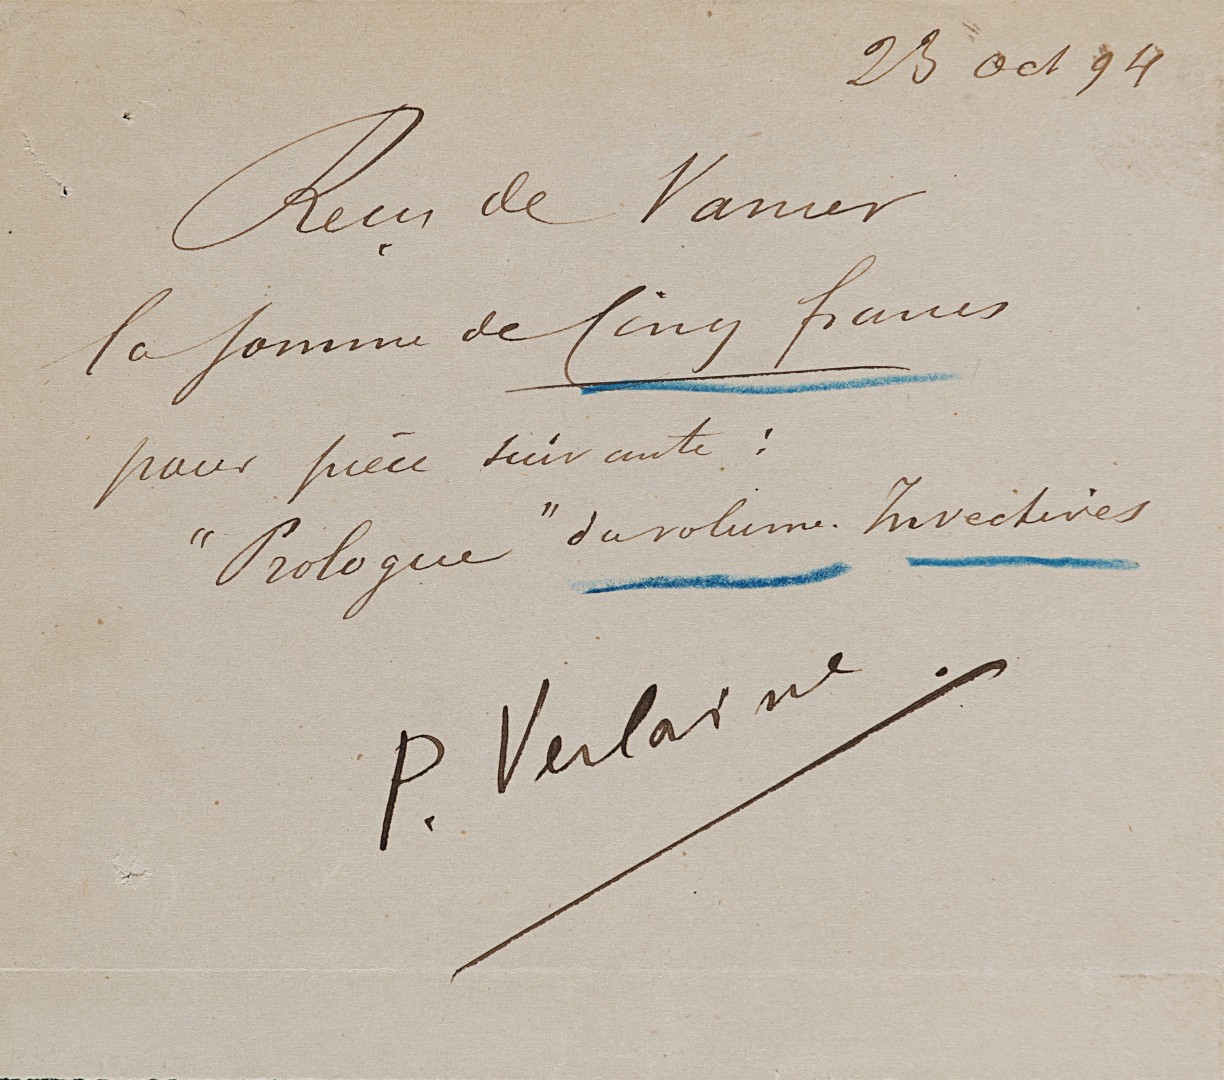 23 Oct 94
Reçu de Vanier
la somme de Cinq francs
pour pièce suivante :
"Prologue" du volume. Invectives
P. Verlaine.